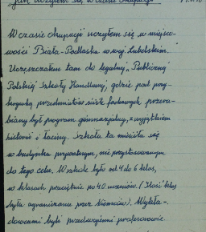 Jak uczyłem się w czasie okupacji
W czasie okupacji uczyłem się w miejsco-
wości Biała-Podlaska woj. Lubelskie.
Uczęszczałem tam do legalnej, Publicznej
Polskiej Szkoły Handlowej, gdzie pod pre-
tekstem przedmiotów ściśle fachowych przera-
biany był program gimnazjalny, z wyjątkiem
historii i łaciny. Szkoła ta mieściła się
w budynku prywatnym, nie przystosowanym
do tego celu. W szkole było od 4 do 6 klas,
w klasach przeciętnie po 40 uczniów. (Ilość klas
była ograniczona przez Niemców). Wykła-
dowcami byli przedwojenni profesorowie